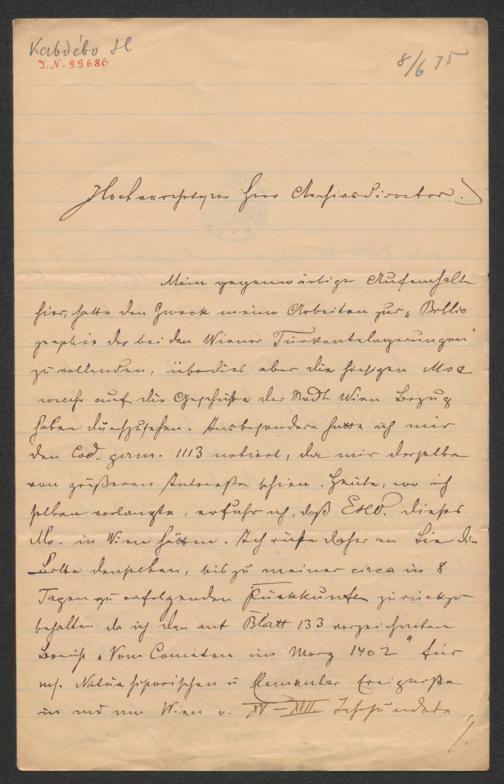 Kabdébo H
I.N. 99686
8/6 75
Hochverehrter Herr Archivsdirector.
Mein gegenwärtiger Aufenthalt
hier, hatte den Zweck meine Arbeiten zur „Biblio
graphie der beiden Wiener Türkenbelagerungen"
zu vollenden, überdies aber die hiesigen Msc
welche auf die Geschichte der Stadt Wien Bezug
haben durchzusehen. Insbesondere hatte ich mir
den Cod. germ. 1113 notiert, da mir derselbe
von größerem Interesse schien. Heute, wo ich
selben verlangte, erfuhr ich, daß dieses
Ms. in Wien hätten. Ich rufe daher an Sie die
Bitte denselben, bis zu meiner circa in 8
Tagen zu erfolgenden Rückkunft zurückzu
behalten da ich den auf Blatt 133 verzeichneten
Bericht „Vom Cometen im Merz 1402" für
m. Natur historischen u Elementar Ereignisse
in und um Wien v. XV–XVII Jahrhundert